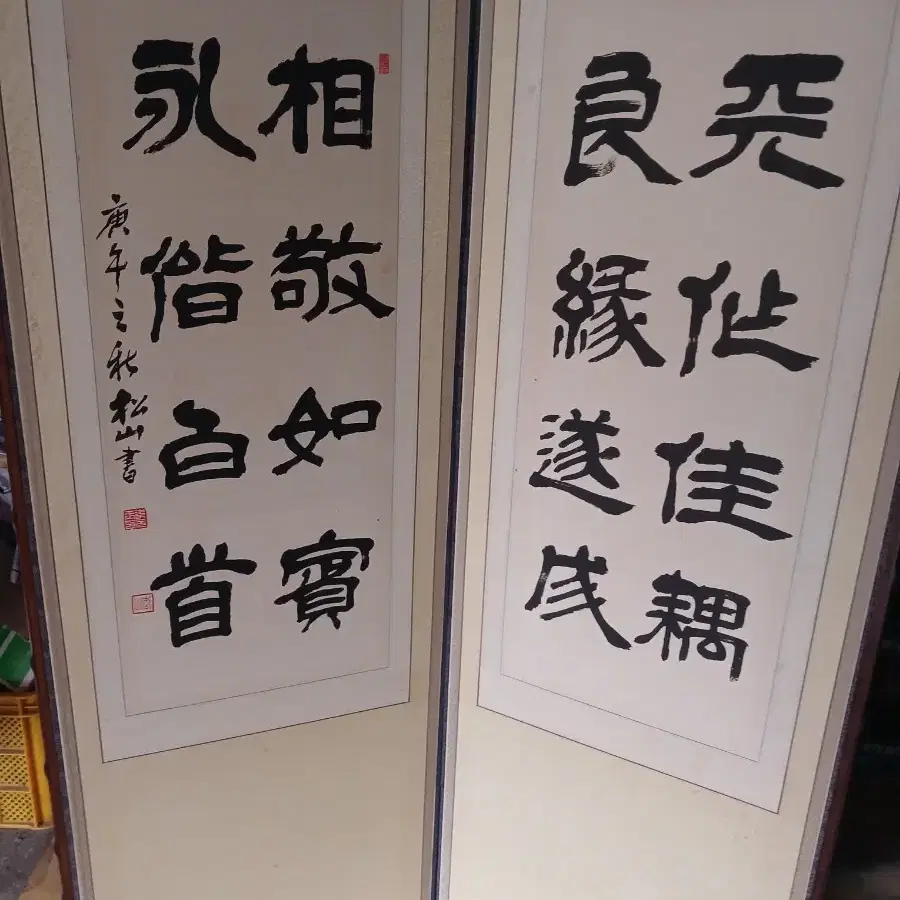 天作佳耦
良緣遂成
相敬如賓
永偕白首
庚午之秋松山書